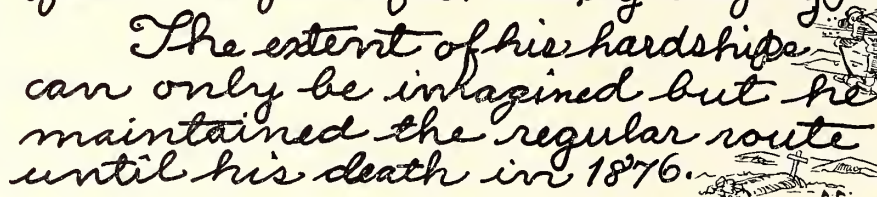 The extent of his hardships
can only be imagined but he
maintained the regular route
until his death in 1876.